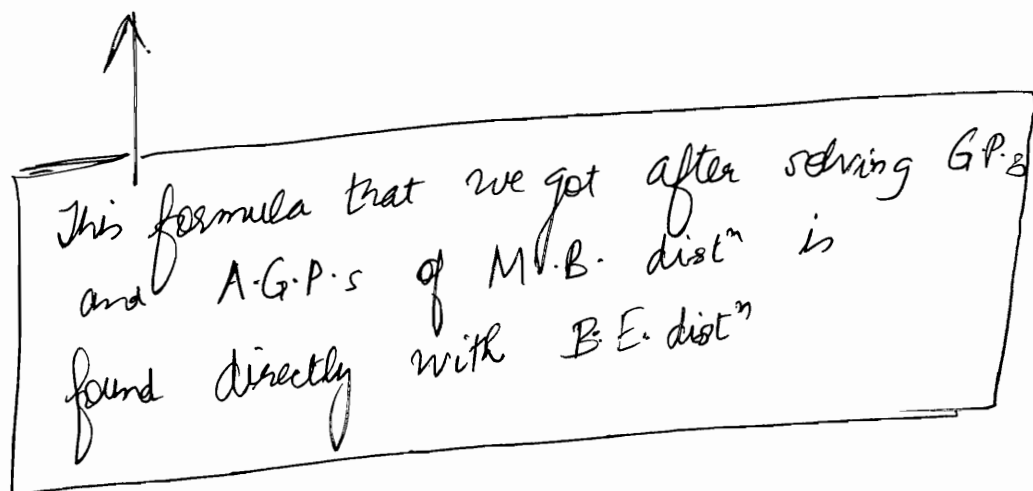 This formula that we got after solving G.P.s
and A.G.P.s of M.B. distⁿ is
found directly with B.E. distⁿ